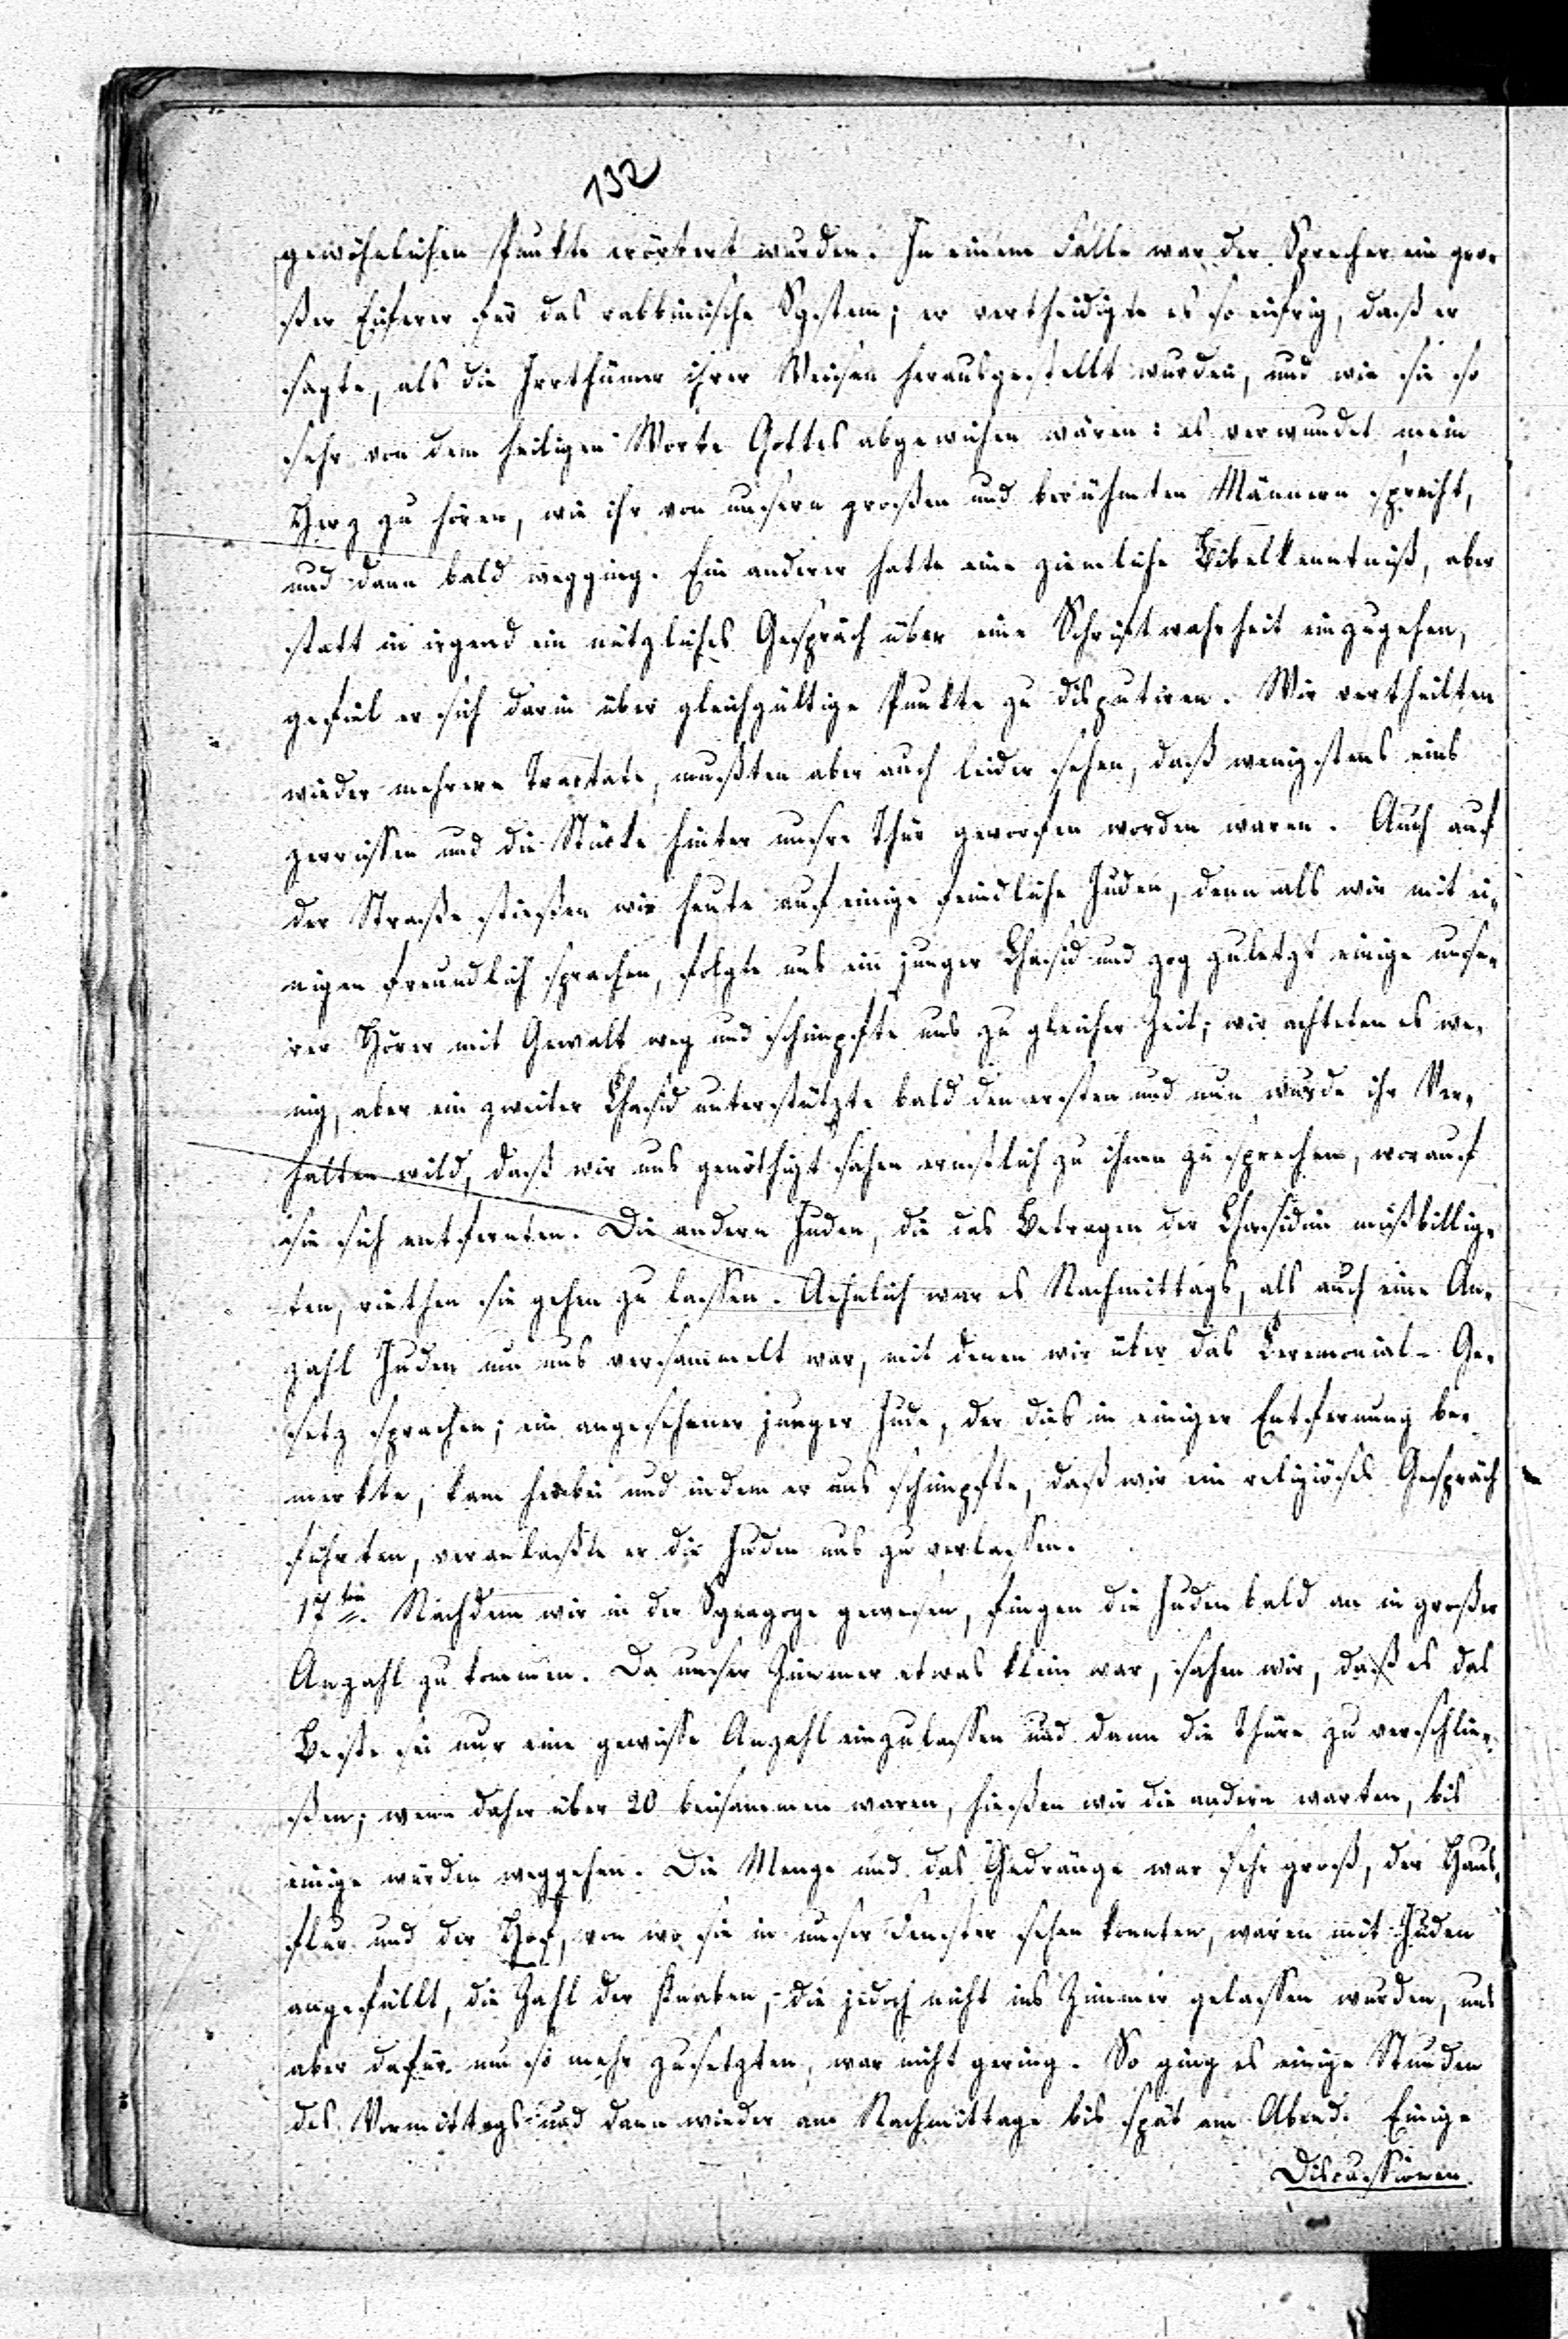 132
gewöhnlichen Punkte erörtert wurden. In einem Falle war der Sprecher ein gro-
ßer Eiferer für das rabbinische System; er vertheidigte es so eifrig, daß er
sagte, als die Irrthümer ihrer Weisen herausgestellt wurden, und wie sie so
sehr von dem heiligen Worte Gottes abgewichen wären: es verwundet mein
Herz zu hören, wie ihr von unsern großen und berühmten Männern sprecht,
und dann bald wegging. Ein anderer hatte eine ziemliche Bibelkenntniß, aber
statt in irgend ein nützliches Gespräch über eine Schriftwahrheit einzugehen,
gefiel er sich darin über gleichgültige Punkte zu disputiren. Wir vertheilten
wieder mehrere Tractate, mußten aber auch leider sehen, daß wenigstens eins
zerrissen und die Stücke hinter unsre Thür geworfen worden waren. Auch auf
der Straße stießen wir heute auf einige feindliche Juden, denn als wir mit ei-
nigen freundlich sprachen, folgte uns ein junger Chasid und zog zuletzt einige unse-
rer Hörer mit Gewalt weg und schimpfte uns zu gleicher Zeit; wir achteten es we-
nig, aber ein zweiter Chasid unterstützte bald den ersten und nun wurde ihr Ver-
halten wild, daß wir uns genöthigt sahen ernstlich zu ihnen zu sprechen, worauf
sie sich entfernten. Die andern Juden, die das Betragen der Chasidim mißbillig-
ten, riethen sie gehen zu lassen. Aehnlich war es Nachmittags, als auch eine An-
zahl Juden um uns versammelt war, mit denen wir über das Ceremonial-Ge-
setz sprachen; ein angesehener junger Jude, der dies in einiger Entfernung be-
merkte, kam herbei und indem er uns schimpfte, daß wir ein religiöses Gespräch
führten, veranlaßte er die Juden uns zu verlassen.
17ten. Nachdem wir in der Synagoge gewesen, fingen die Juden bald an in großer
Anzahl zu kommen. Da unser Zimmer etwas klein war, sahen wir, daß es das
Beste sei nur eine gewisse Anzahl einzulassen und dann die Thüre zu verschlie-
ßen; wenn daher über 20 beisammen waren, hießen wir die andern warten, bis
einige würden weggehen. Die Menge und das Gedränge war sehr groß, der Haus-
flur und der Hof, von wo sie in unser Fenster sehen konnten, waren mit Juden
angefüllt, die Zahl der Knaben, die jedoch nicht ins Zimmer gelassen wurden, uns
aber dafür um so mehr zusetzten, war nicht gering. So ging es einige Stunden
des Vormittags und dann wieder am Nachmittage bis spät am Abend. Einige
Discussionen